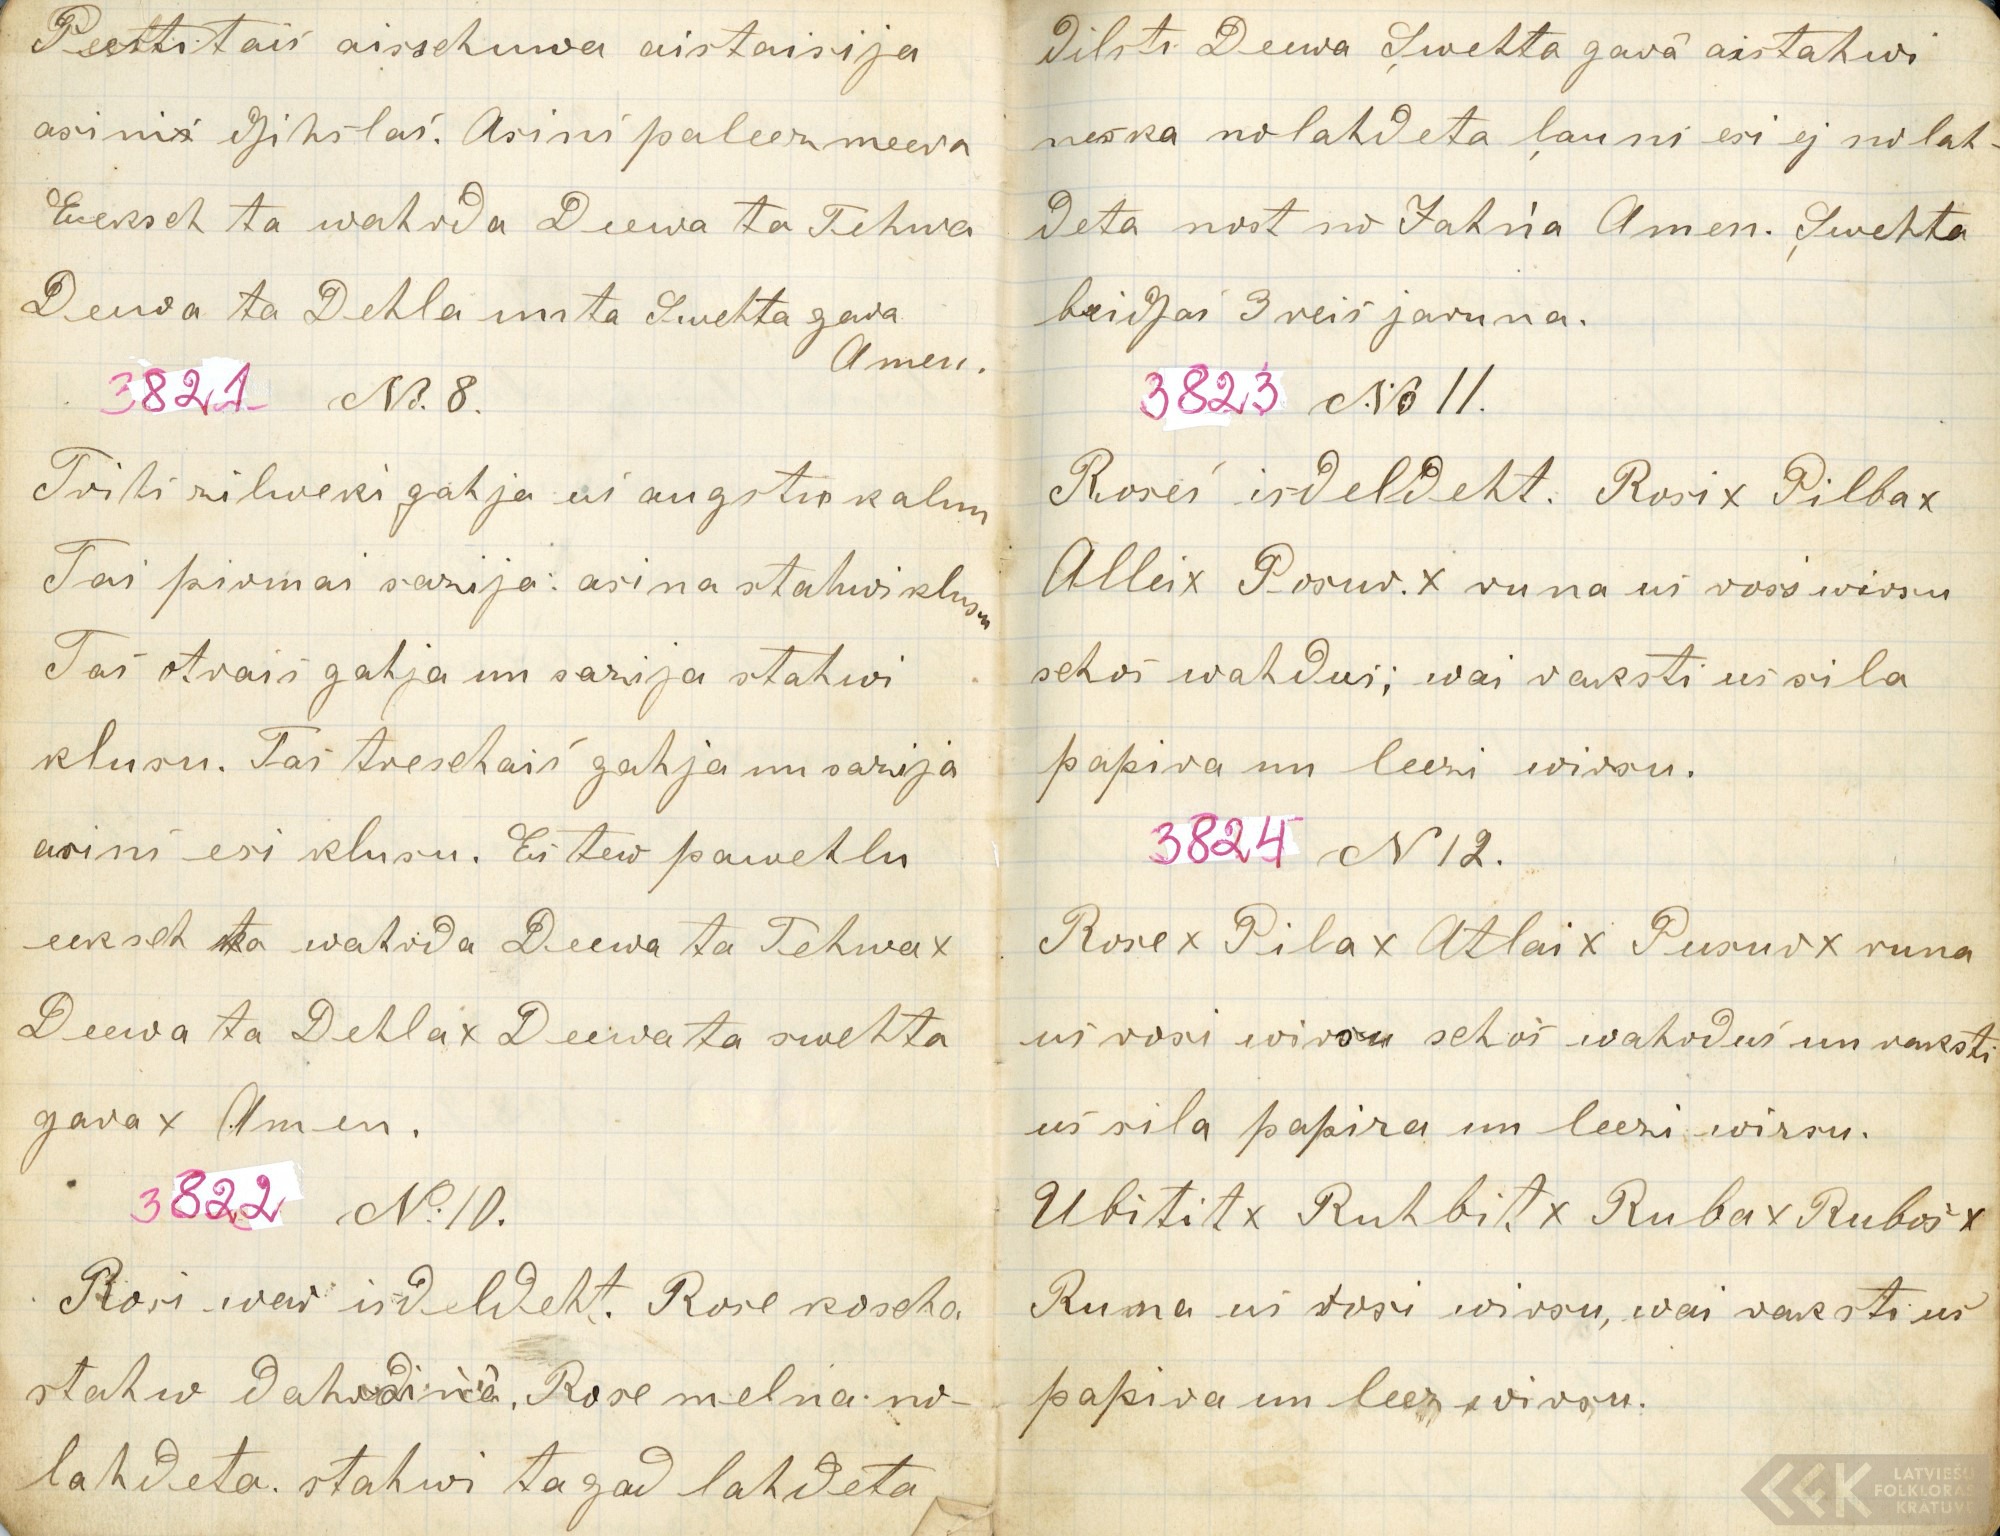 Peettitais aisschuwa aistaisija
asinis dzihslas. Asins paleez meera
Eeksch ta wahrda Deewa ta Tehwa
Deewa ta Dehla un ta Swehta gara
Amen.
3821 No. 8.
Trihs zilweki gahja us augstu kalnu
Tai pirmai sazija: asina stahwi klusu
Tas otrais gahja un sazija stahwi
klusu. Tas treschais gahja un sazija
asins esi klusu. Es tew pawehlu
eeksch ta wahrda Deewa ta Tehwa x
Deewa ta Dehla x Deewa ta swehta
gara x Amen.
3822 No. 10.
Rosi war isdeldeht. Rose koscha
stahw dahrdinā. Rose melna no-
lahdeta. stahwi tagad lahdeta
dilsti Deewa Swehta garā aistahwi
neska nolahdeta launs esi ej nolah-
deta nost no Jahńa Amen. Swehta
beidzas 3 reis jaruna.
3823 No 11.
Roses isdeldeht. Rosi x Pilba x
Allei x Posur. x runa us rosi wirsu
schos wahdus; wai raksti us sila
papira un leezi wirsu.
3824 N 12.
Rose x Pila x Atlai x Pusur x runa
us rosi wirsu schos wahrdus un raksti
us sila papira un leezi wirsu.
Ubitit x Ruhbit x Ruba x Rubos x
Runa us rosi wirsu, wai raksti us
papira un leez wirsu.
LATVIEŠU
FOLKLORAS
KRATUVE